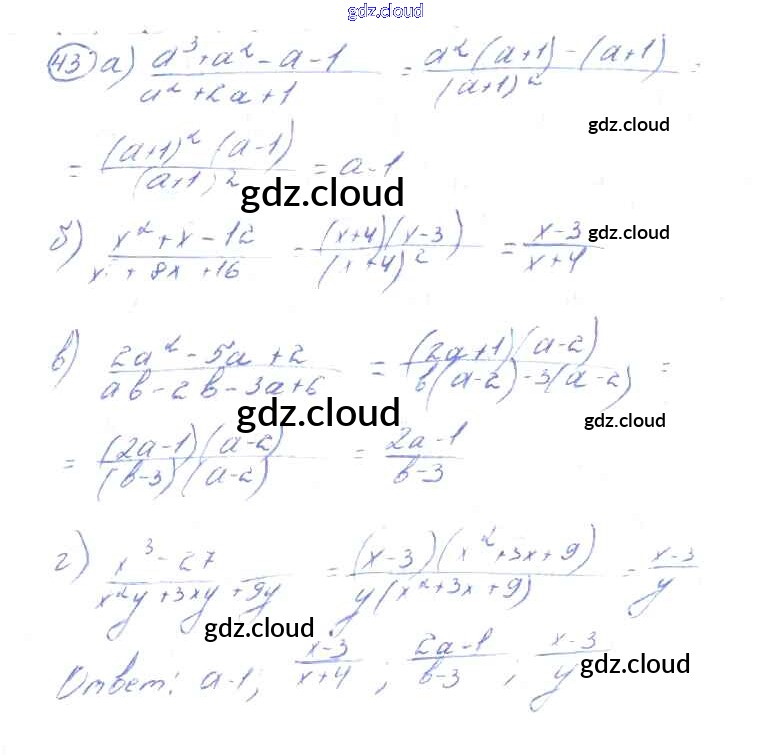 gdz.cloud
43) а) (a³ + a² - a - 1)/(a² + 2a + 1) = (a²(a+1) - (a+1))/(a+1)² =
gdz.cloud
= ((a+1)²(a-1))/(a+1)² = a-1
gdz.cloud
б) (x² + x - 12)/(x + 8x + 16) = ((x+4)(x-3))/(x+4)² = (x-3)/(x+4)
gdz.cloud
в) (2a² - 5a + 2)/(ab - 2b - 3a + 6) = ((2a+1)(a-2))/(b(a-2) - 3(a-2)) =
gdz.cloud
gdz.cloud
= ((2a-1)(a-2))/((b-3)(a-2)) = (2a-1)/(b-3)
г) (x³ - 27)/(x²y + 3xy + 9y) = ((x-3)(x² + 3x + 9))/(y(x² + 3x + 9)) = (x-3)/y
gdz.cloud
Ответ: a-1; (x-3)/(x+4); (2a-1)/(b-3); (x-3)/y
gdz.cloud